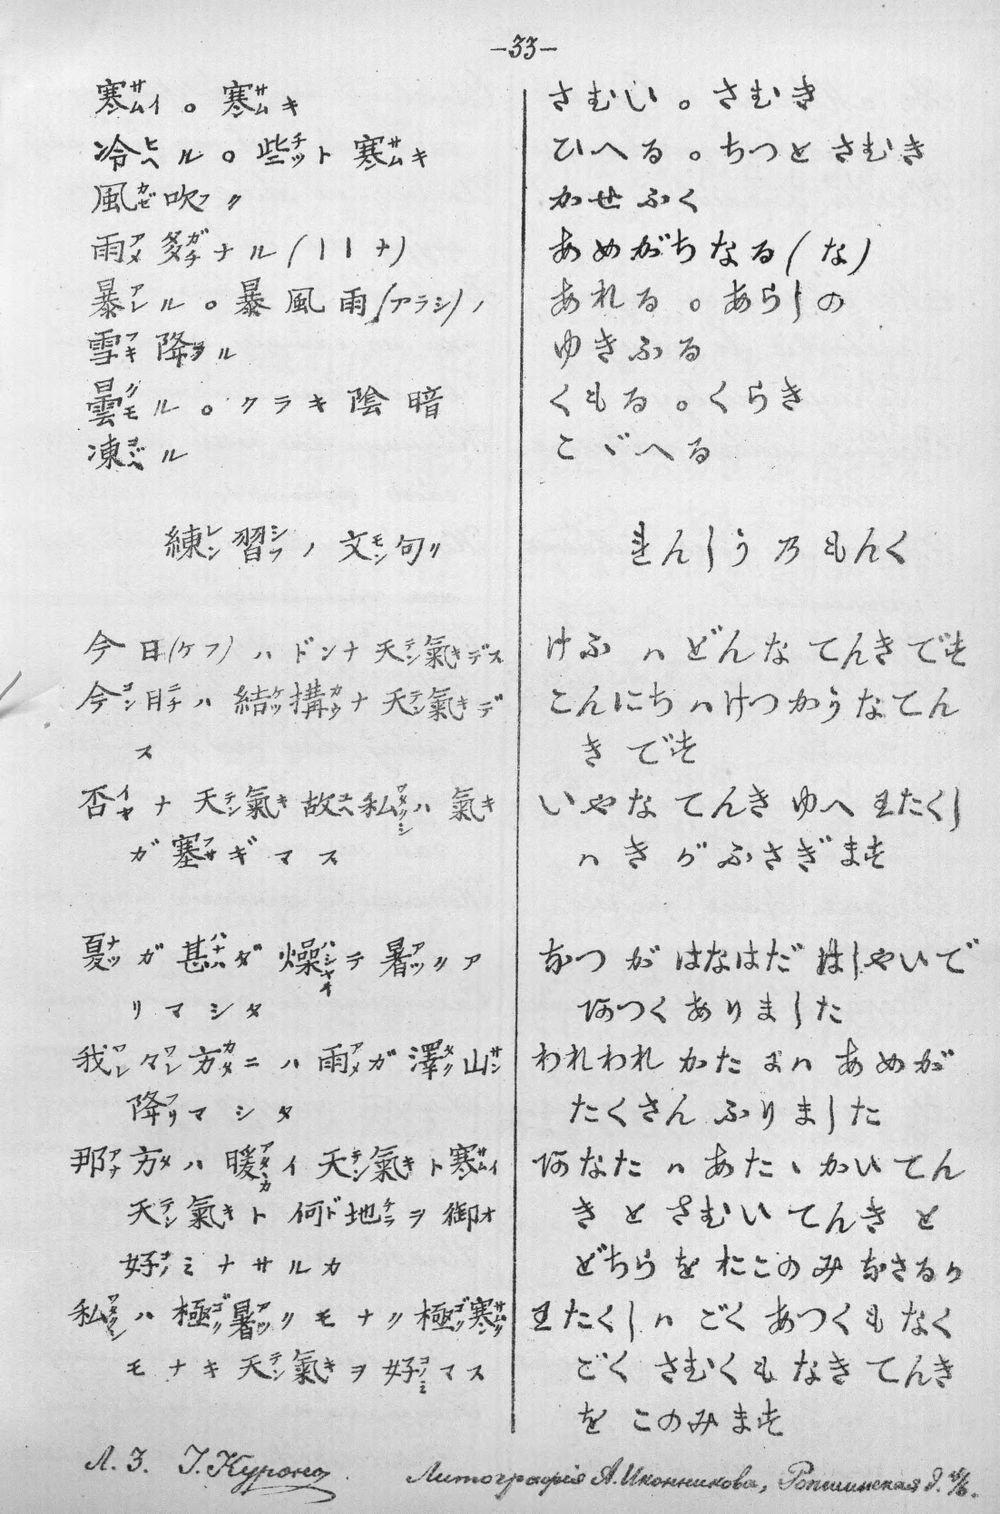 —33—
寒サムイ。寒サムキ
冷ヒヘル。些チツト寒サムキ
風カゼ吹フク
雨アメ多ガチナル(〡〡ナ)
暴アレル。暴風雨(アラシ)ノ
雪ユキ降フル
曇クモル。クラキ陰暗
凍コゞヘル
練レン習シフノ文モン句ク
今日(ケフ)ハドンナ天テン氣キデス
今コン日ニチハ結ケツ構カウナ天テン氣キデ
ス
否イヤナ天テン氣キ故ユヘ私ワタクシハ氣キ
ガ塞フサギマス
夏ナツガ甚ハナハダ燥ハシヤイデ暑アツクア
リマシタ
我ワレ々ワレ方カタニハ雨アメガ澤タク山サン
降フリマシタ
那アナ方タハ暖アタヽカイ天テン氣キト寒サムイ
天テン氣キト何ド地チラヲ御オ
好コノミナサルカ
私ワタクシハ極ゴク暑アツクモナク極ゴク寒サムク
モナキ天テン氣キヲ好コノミマス
さむい。さむき
ひへる。ちつとさむき
かせふく
あめがちなる(な)
あれる。あらしの
ゆきふる
くもる。くらき
こゞへる
れんしうのもんく
けふハどんなてんきです
こんにちハけつかうなてん
きです
いやなてんきゆへわたくし
ハきがふさぎます
なつがはなはだはしやいで
あつくありました
われわれかたにハあめが
たくさんふりました
あなたハあたゝかいてん
きとさむいてんきと
どちらをおこのみなさるか
わたくしハごくあつくもなく
ごくさむくもなきてんき
をこのみます
Л. З. І. Куроно
Литографія А. Иконникова, Ропшинская д.